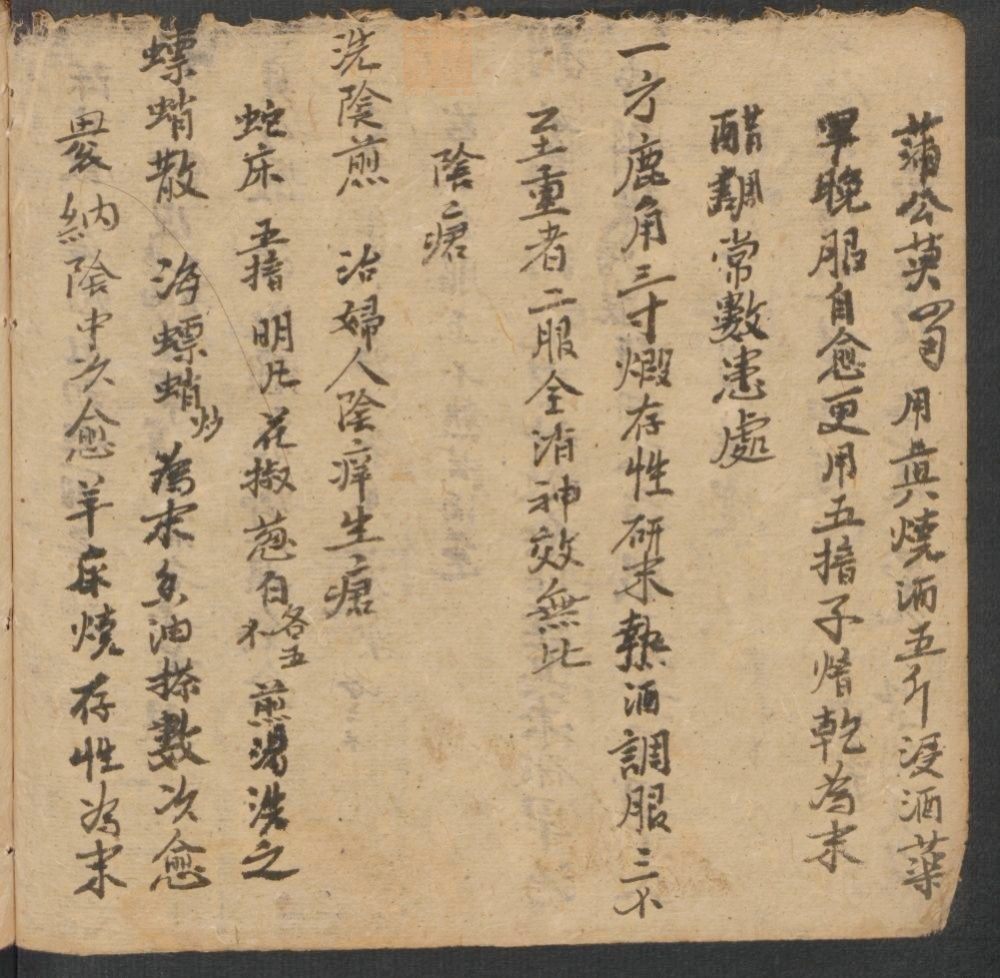 蒲公英四甪用真燒酒五斤浸酒藥
早晚服自愈更用五揞子熸乾為末
醋調常數患處
一方鹿角三寸煅存性研末热酒調服三不
至重者二服全消神效無比
陰瘡
洗陰煎 治婦人陰痒生瘡
蛇床 五揞 明凡 花椒 葱白各五不 煎湯洗之
螵蛸散 海螵蛸炒為末 油搽數次愈
納陰中次愈 羊床燒存性為末